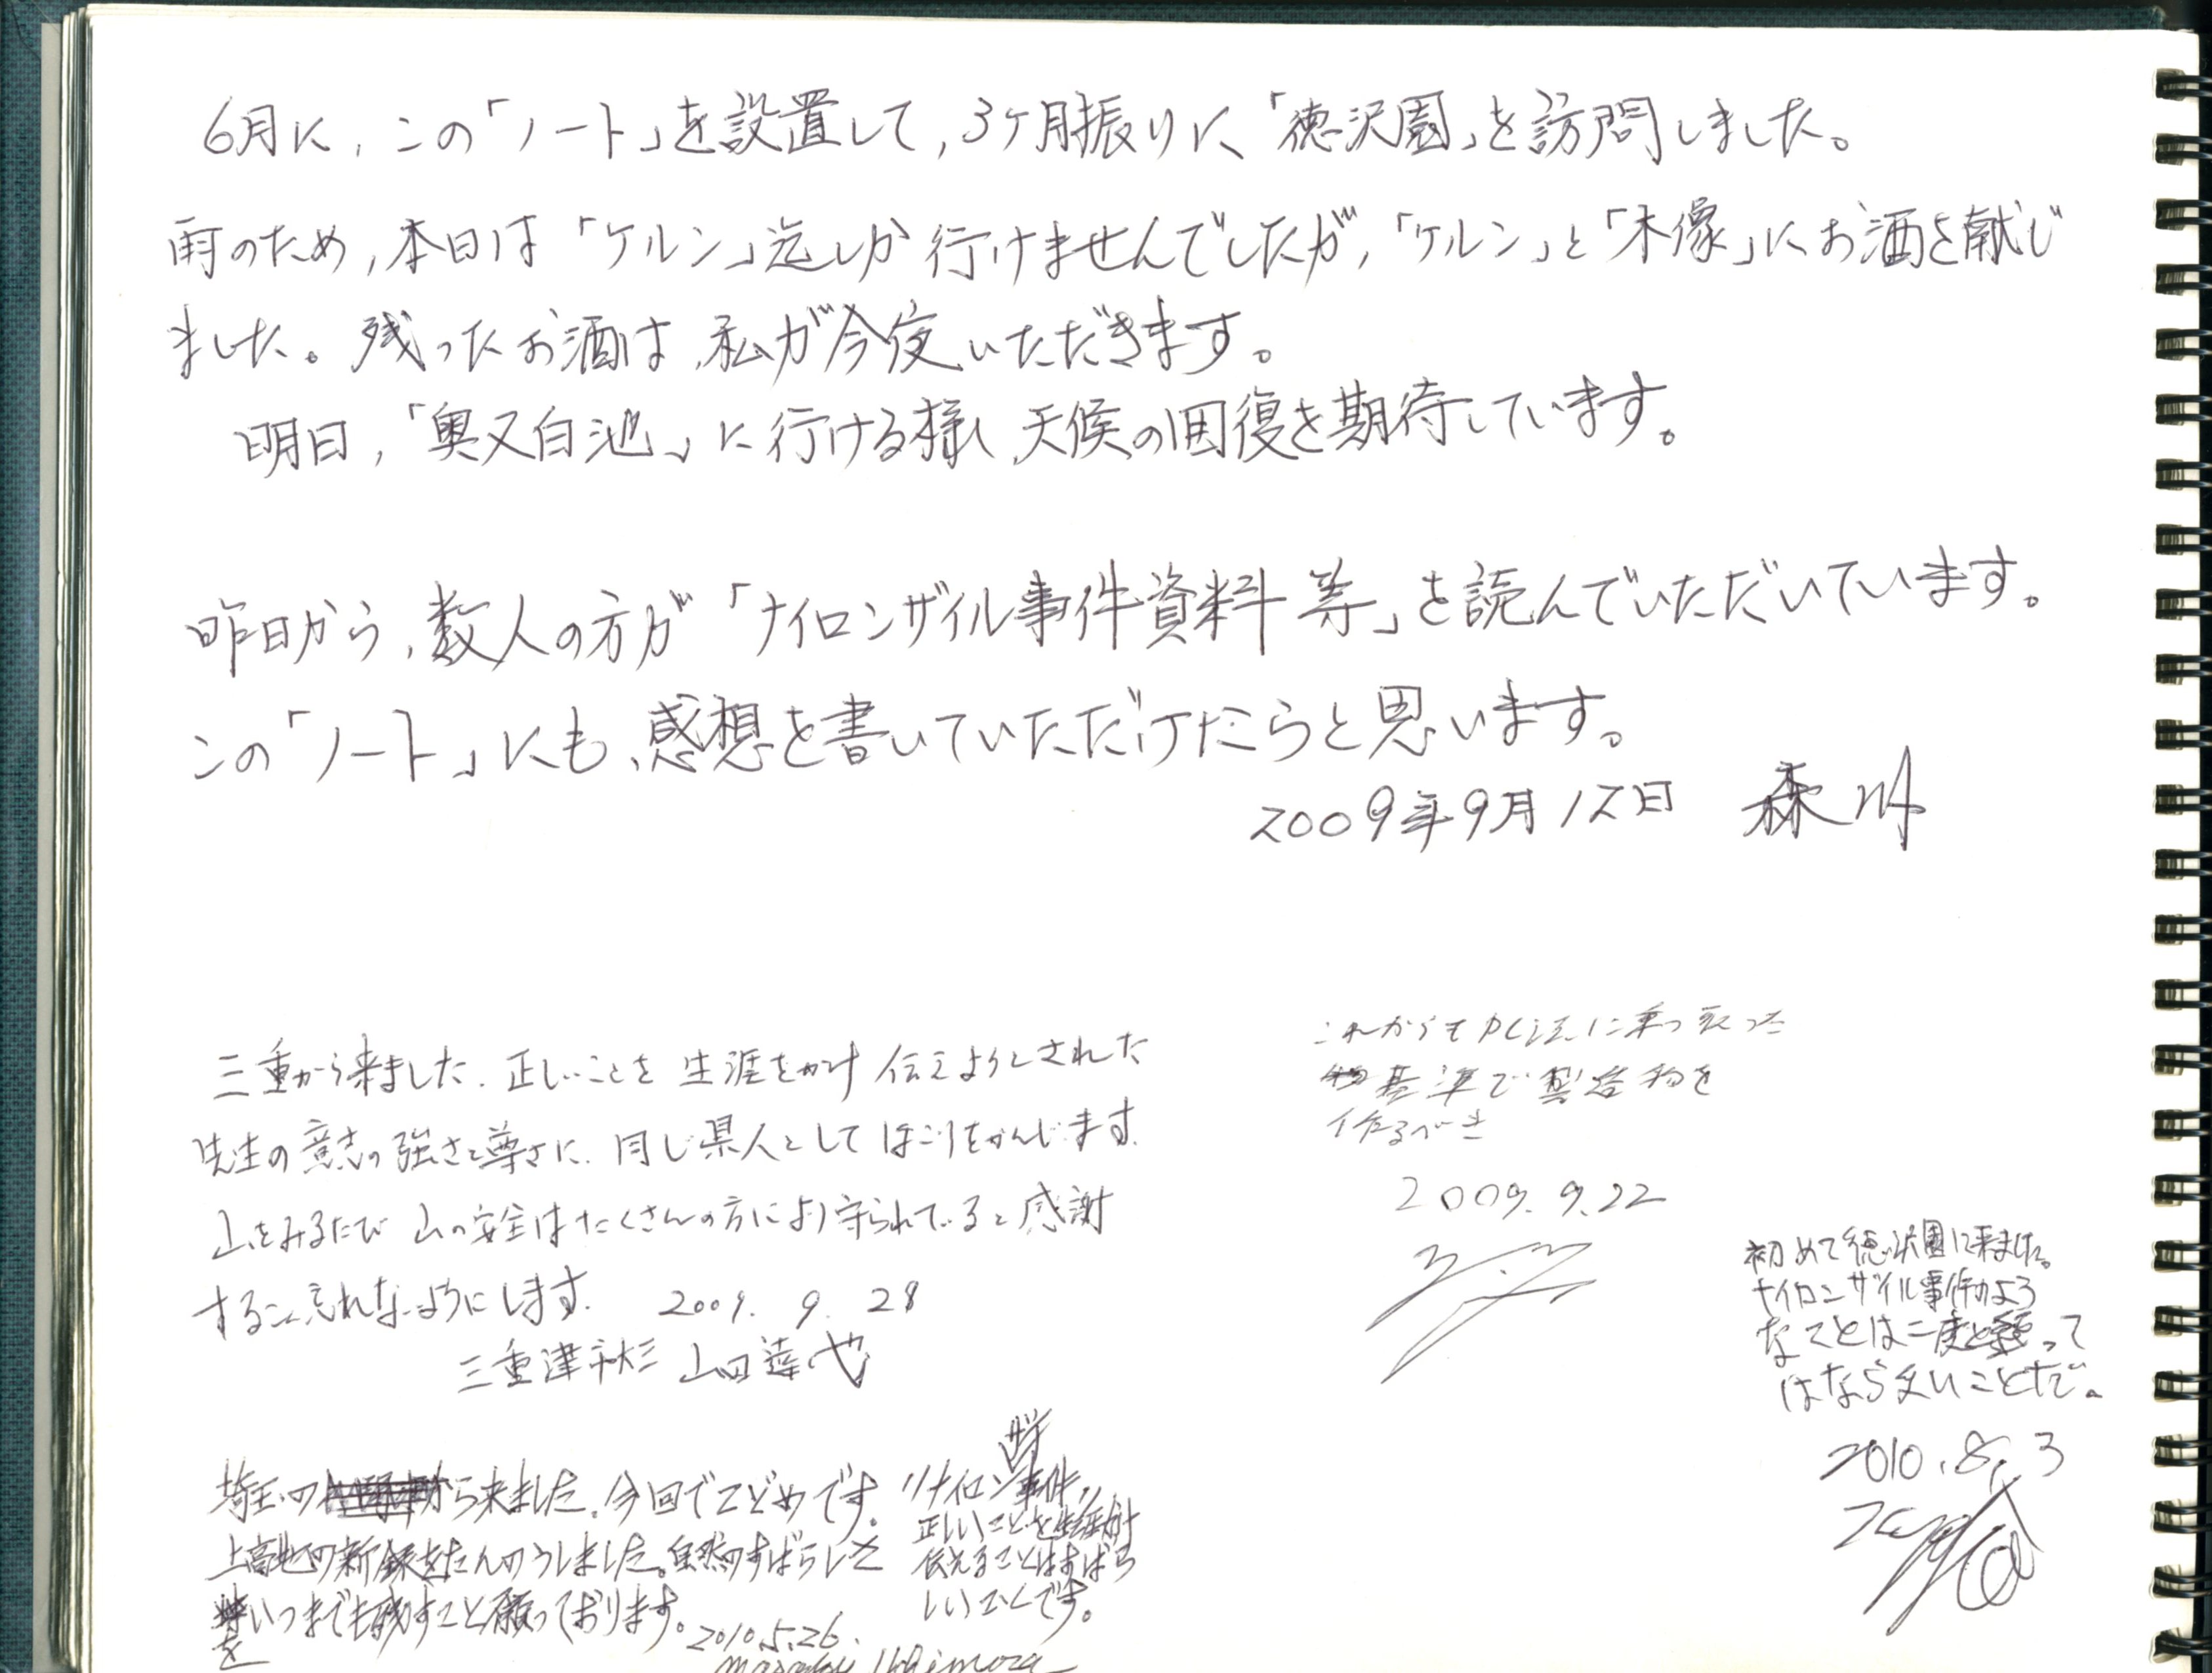 6月に、この「ノート」を設置して、3ヶ月振りに、「徳沢園」を訪問しました。
雨のため、本日は「ケルン」迄しか行けませんでしたが、「ケルン」と「木像」にお酒を献じ
ました。残ったお酒は、私が今夜いただきます。
明日、「奥又白池」に行ける様、天候の回復を期待しています。
昨日から、数人の方が「ナイロンザイル事件資料等」を読んでいただいています。
この「ノート」にも、感想を書いていただけたらと思います。
2009年9月12日 森川
三重から来ました。正しいことを生涯をかけ伝えようとされた
先生の意志の強さと尊さに、同じ県人としてほこりをかんじます。
山をみるたび山の安全はたくさんの方により守られていると感謝
すること忘れないようにします。 2009. 9. 28
三重津市 山田達也
これからもPL法に乗っ取った
基準で製造物を
作るべき
2009. 9. 22
初めて徳沢園に来ました。
ナイロンザイル事件のよう
なことは二度とあって
はならないことだ。
2010. 8. 3
埼玉の から来ました。今回で二どめです。
上高地の新緑をたんのうしました。自然のすばらしさ
をいつまでも残すこと願っております。
2010.5.26.
"ナイロンザイル事件"
正しいことを生涯かけ
伝えることはすばら
しいことです。